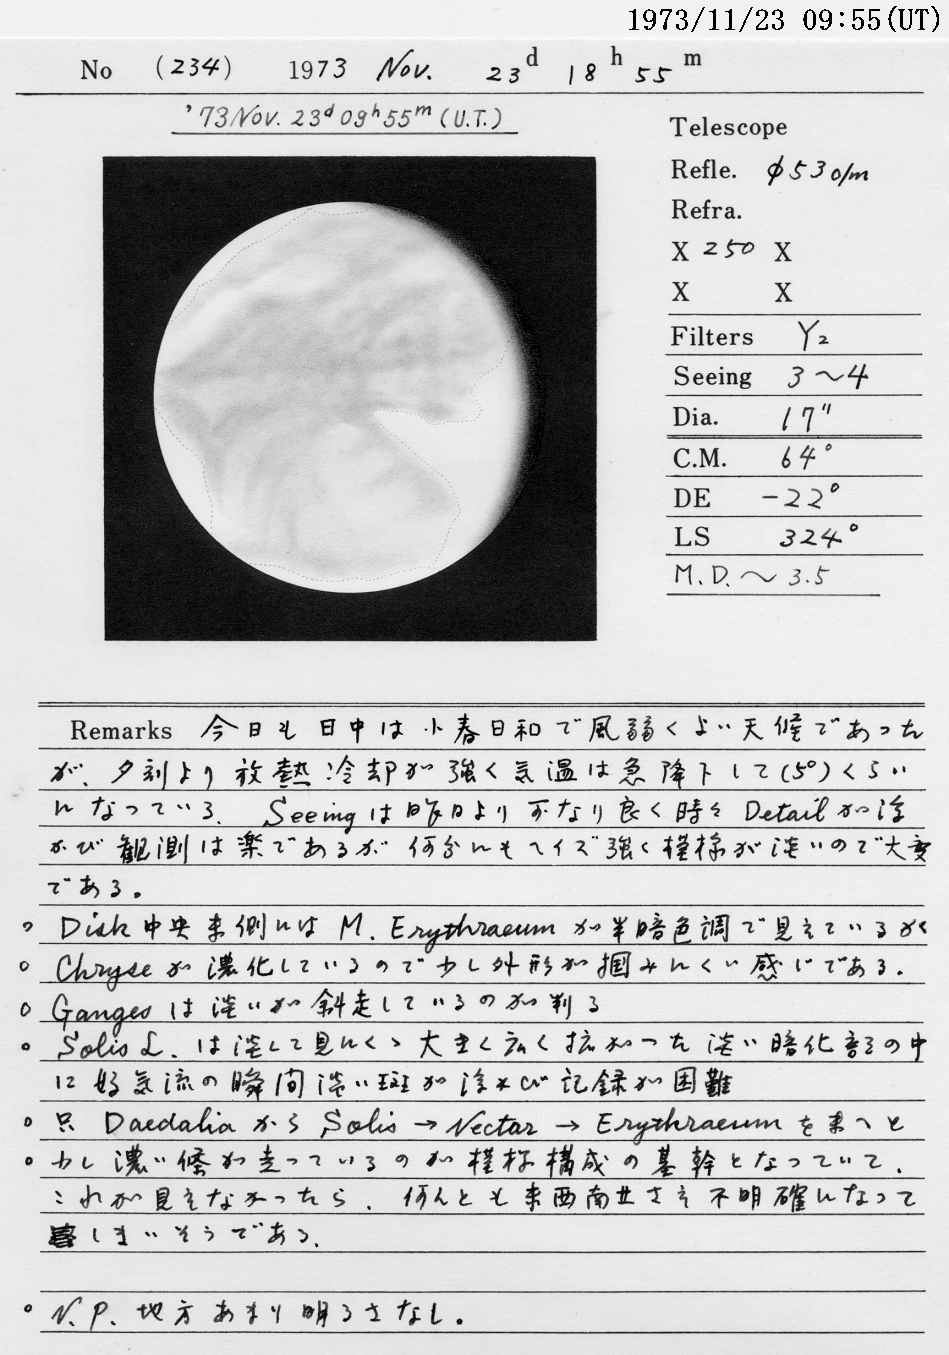 1973/11/23 09:55(UT)
No (234) 1973 Nov. 23d 18h 55m
'73 Nov. 23d 09h 55m (U.T.)
Telescope
Refle. φ530/m
Refra.
X 250 X
X X
Filters Y2
Seeing 3～4
Dia. 17"
C.M. 64°
DE -22°
LS 324°
M.D.～3.5
Remarks 今日も日中は小春日和で風弱くよい天候であった
が、夕刻より放熱冷却が強く気温は急降下して(5°)くらい
になっている. Seeingは昨日より可なり良く時々Detailが浮
かび観測は楽であるが何分にもヘイズ強く模様が淡いので大変
である。
○ Disk中央東側にはM. Erythraeumが半暗色調で見えているが
○ Chryseが濃化しているので少し外形が掴みにくい感じである.
○ Gangesは淡いが斜走しているのが判る
○ Solis L. は淡して見にくゝ大きく広く拡がった淡い暗化部の中
に好気流の瞬間淡い斑が浮かび記録が困難
○ 只 DaedaliaからSolis→Nectar→Erythraeumを東へと
○ 少し濃い條が走っているのが模様構成の基幹となっていて.
これが見えなかったら. 何んとも東西南北さえ不明確になって
しまいそうである.
○ N.P. 地方あまり明るさなし.